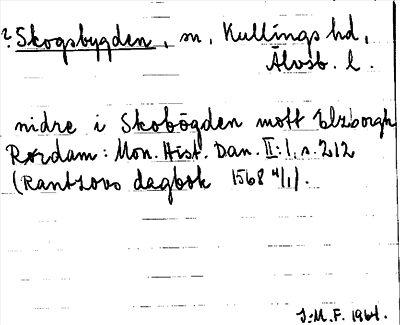 ? Skogsbygden, sn, Kullings hd,
Älvsb. l.
nidre i Skobögden mott Elzborgh
Rørdam: Mon. Hist. Dan. II:1, s. 212
(Rantzovs dagbok 1568 4/1).
J.M.F. 1964.